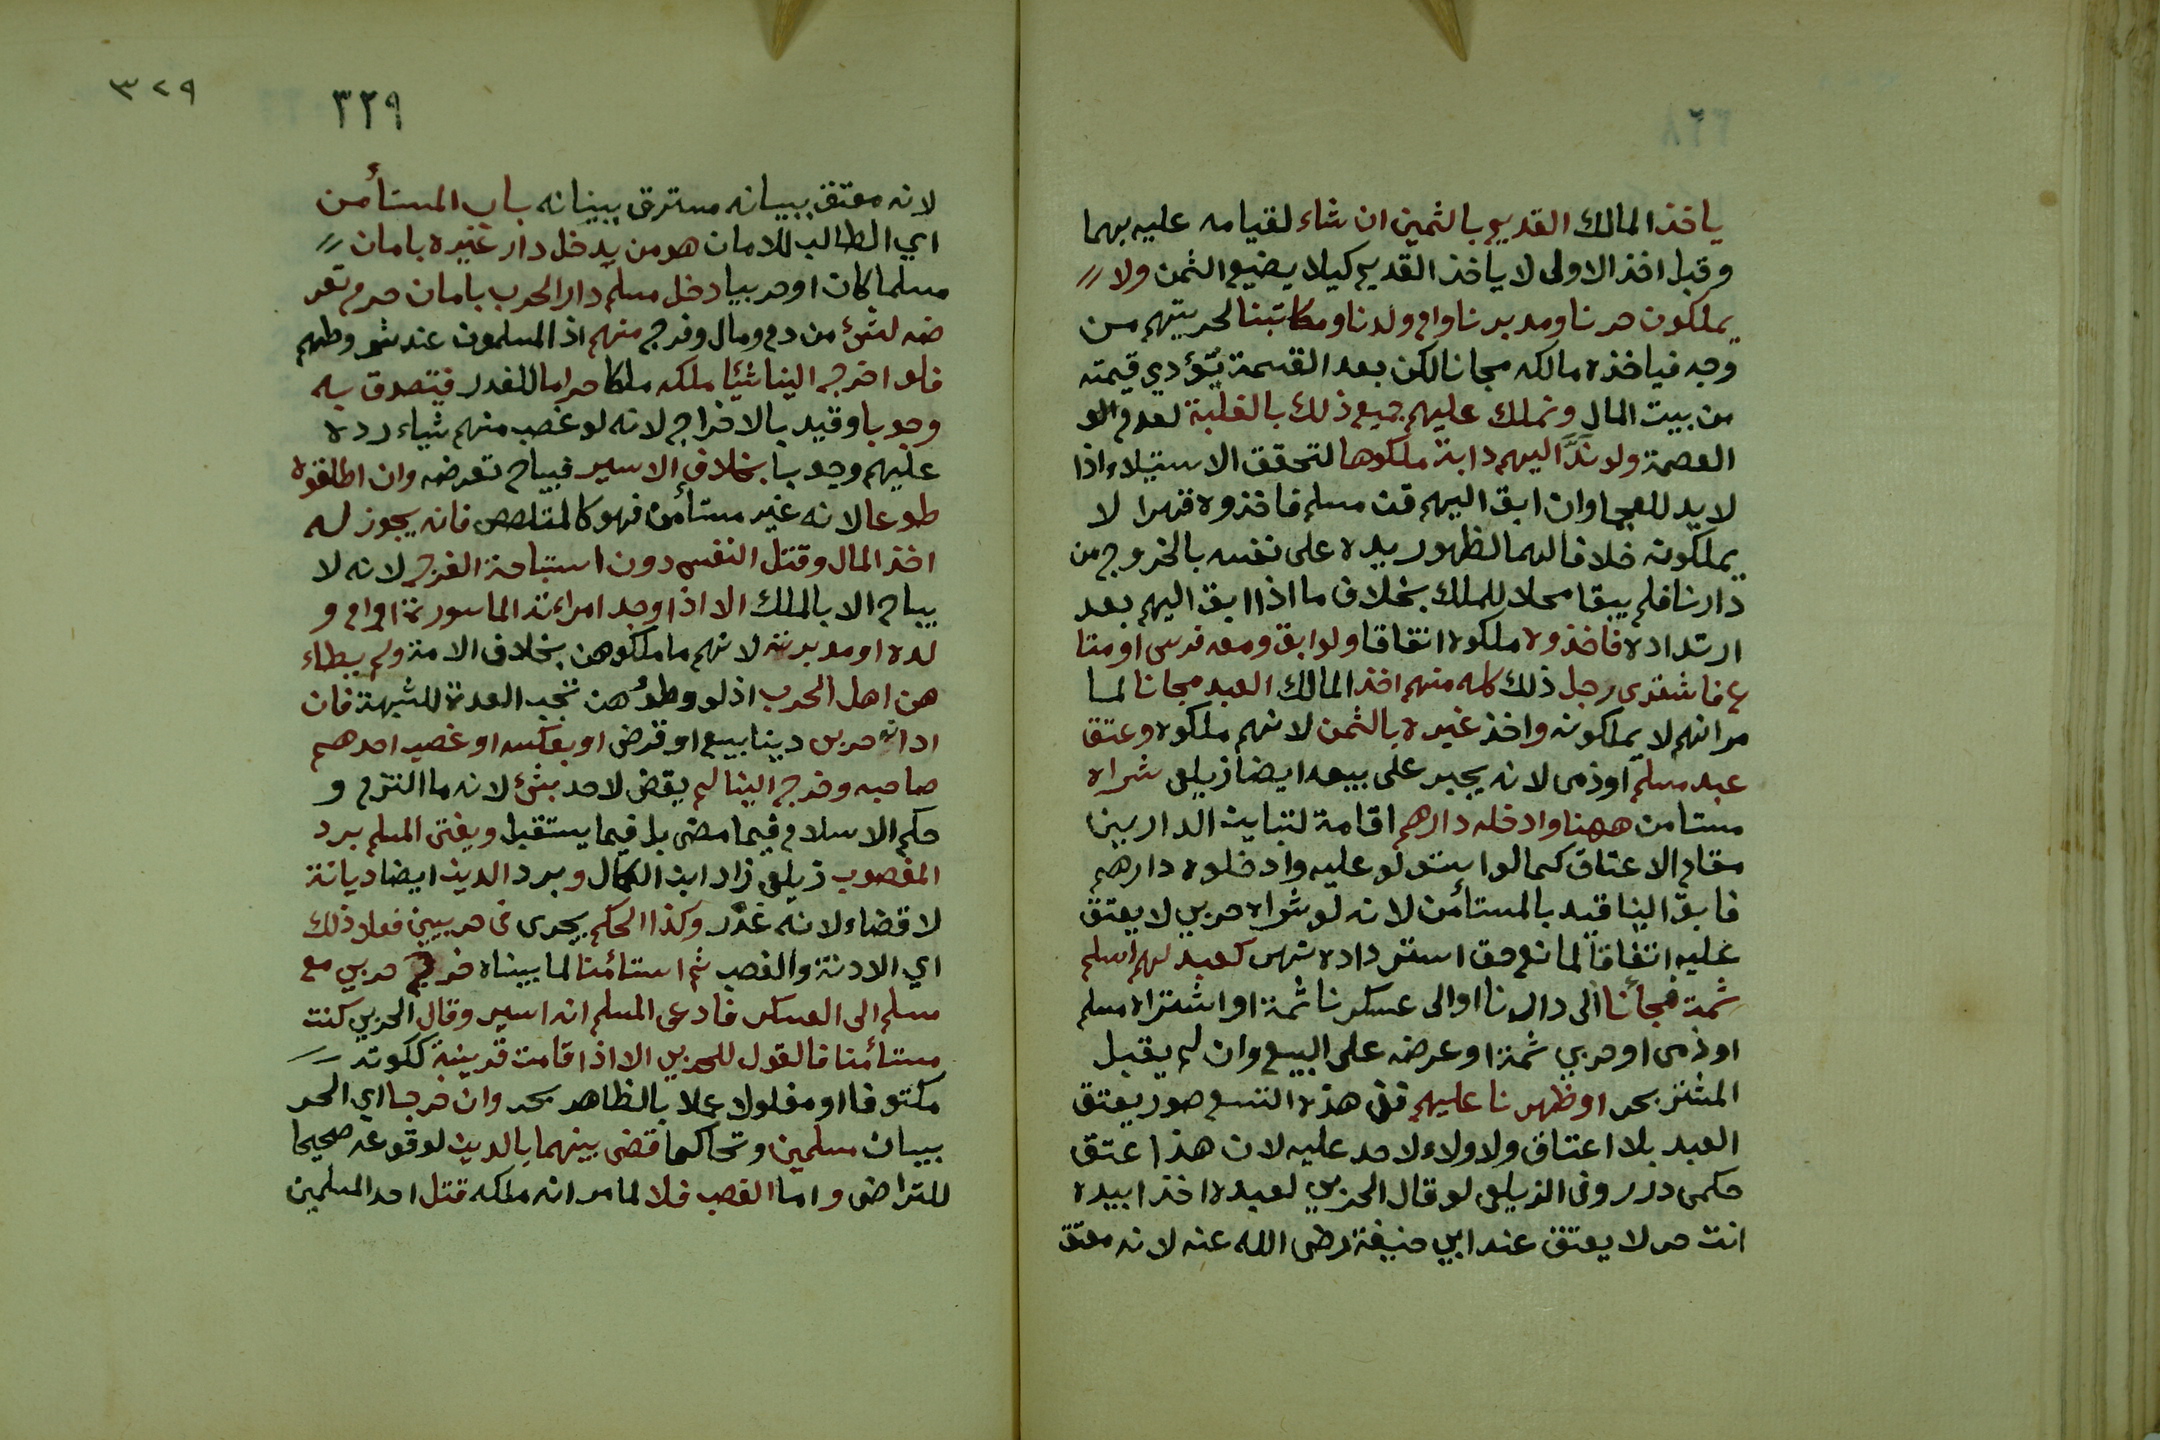 ياخذ المالك القديم بالثمين ان شاء لقيامه عليه بهما
وقبل اخذ الاولى لا ياخذ القديم كيلا يضيع الثمن ولا
يملكون حرنا ومدبرنا وام ولدنا ومكاتبنا لحريتهم من
وجه فياخذه مالكه مجانا لكن بعد القسمة يؤدي قيمته
من بيت المال ونملك عليهم جميع ذلك بالغلبة لعدم الو
العصمة ولو ندَّ اليهم دابة ملكوها لتحقق الاستيلاء اذا
لا يد للعجما وان ابق اليهم قن مسلم فاخذوه قهرا لا
يملكونه خلافا لهما لظهور يده على نفسه بالخروج من
دارنا فلم يبقا محلا للملك بخلاف ما اذا ابق اليهم بعد
ارتداده فاخذوه ملكوه اتفاقا ولو ابق ومعه فرس او متا
ع فاشترى رجل ذلك كله منهم اخذ المالك العبد مجانا لما
مر انهم لا يملكونه واخذ غيره بالثمن لانهم ملكوه وعتق
عبد مسلم او ذمى لانه يجبر على بيعه ايضا زيلعى شراه
مستامن ههنا وادخله دارهم اقامة لتباين الدارين
مقام الاعتاق كما لو استولو عليه وادخلوه دارهم
فابق الينا قيد بالمستأمن لانه لو شراه حربي لا يعتق
عليه اتفاقا لمانع حق استرداده نهر كعبد لهم اسلم
ثمة فجائنا الى دارنا او الى عسكرنا ثمة او اشتراه مسلم
او ذمى او حربي ثمة او عرضه على البيع وان لم يقبل
المشتر بحر او ظهرنا عليهم ففى هذه التسع صور يعتق
العبد بلا اعتاق ولا ولاء لاحد عليه لان هذا عتق
حكمى درر وفى الزيلعى لو قال الحربي لعبده اخذا بيده
انت حر لا يعتق عند ابي حنيفة رضى الله عنه لانه معتق
٣٢٩
٣٢٩
لانه معتق ببيانه مسترق ببنيانه باب المستأمن
اي الطالب للامان هو من يدخل دار غيره بامان
مسلما كان او حربيا دخل مسلم دار الحرب بامان حرم تعر
ضه لشئ من دم ومال وفرج منهم اذ المسلمون عند شروطهم
فلو اخرج الينا شيئا ملكه ملكا حراما للغدر فيتصدق به
وجوبا وقيد بالاخراج لانه لو غصب منهم شياء رده
عليهم وجوبا بخلاف الاسير فيباح تعرضه وان اطلقوه
طوعا لانه غير مستأمن فهو كالمتلصص فانه يجوز له
اخذ المال وقتل النفس دون استباحة الفرج لانه لا
يباح الا بالملك الا اذا وجد امراءته الماسورة او ام و
لده او مدبرته لانهم ما ملكوهن بخلاف الامة ولم يطاء
هن اهل الحرب اذ لو وطؤهن تجب العدة للشبهة فان
ادانه حربي دينا ببيع او قرض او بعكسه او غصب احدهم
صاحبه وخرج الينا لم يقض لاحد بشئ لانه ما التزم و
حكم الاسلام فيما مضى بل فيما يستقبل ويفتى المسلم برد
المغصوب زيلعى زاد ابن الكمال وبرد الدين ايضا ديانة
لا قضاء لانه غدر وكذا الحكم يجرى فى حربيين فعلا ذلك
اي الادنة والغصب ثم استائمنا لما بيناه خرج حربي مع
مسلم الى العسكر فادعى المسلم انه اسير وقال الحربي كنت
مستائمنا فالقول للحربي الا اذا قامت قرينة ككونه
مكتوفا او مغلولا عملا بالظاهر بحر وان خرجا اي الحر
بيان مسلمين وتحاكما قضى بينهما بالدين لوقوعه صحيحا
للتراضى واما الغصب فلا لما مر انه ملكه قتل احد المسلمين